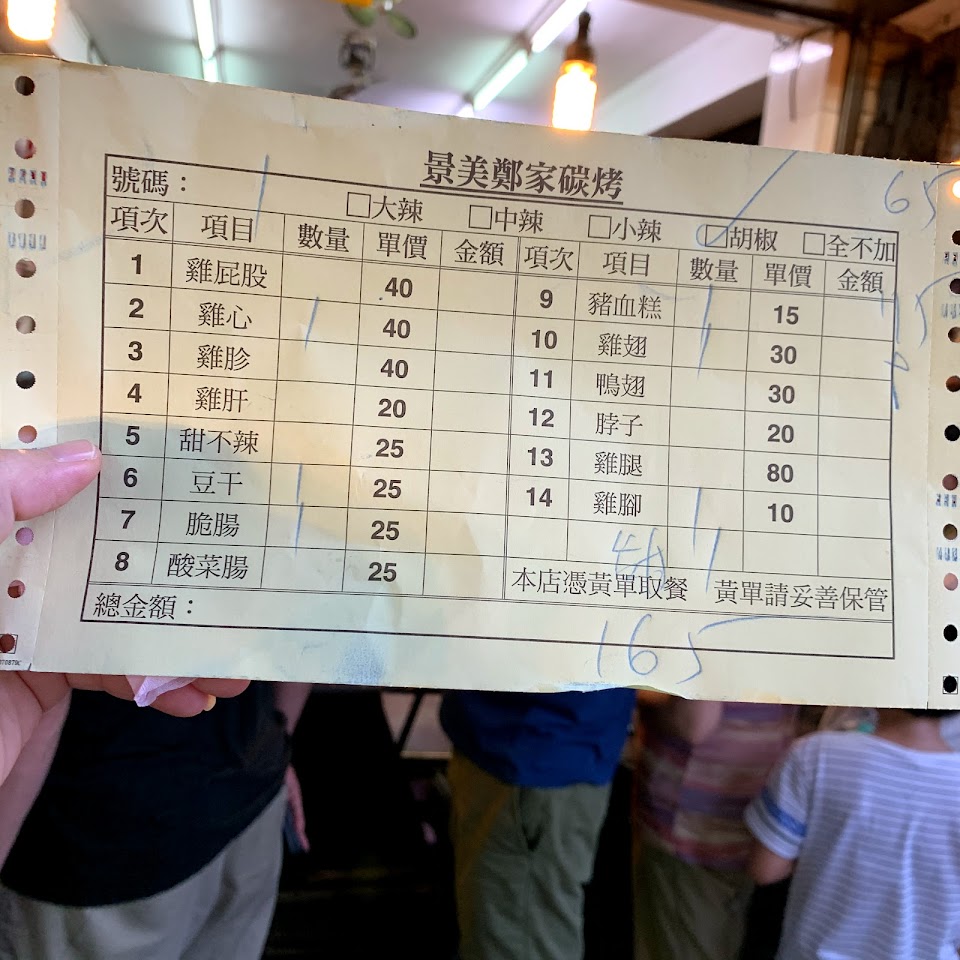 景美鄭家碳烤
65
號碼： 1 □大辣 □中辣 □小辣 ☑胡椒 □全不加
項次 項目 數量 單價 金額 項次 項目 數量 單價 金額
1 雞屁股 40 9 豬血糕 1 15
2 雞心 1 40 10 雞翅 1 30
3 雞胗 40 11 鴨翅 30
4 雞肝 20 12 脖子 20
5 甜不辣 25 13 雞腿 80
6 豆干 1 25 14 雞腳 1 10
7 脆腸 1 25
8 酸菜腸 25 本店憑黃單取餐 黃單請妥善保管
總金額：
165